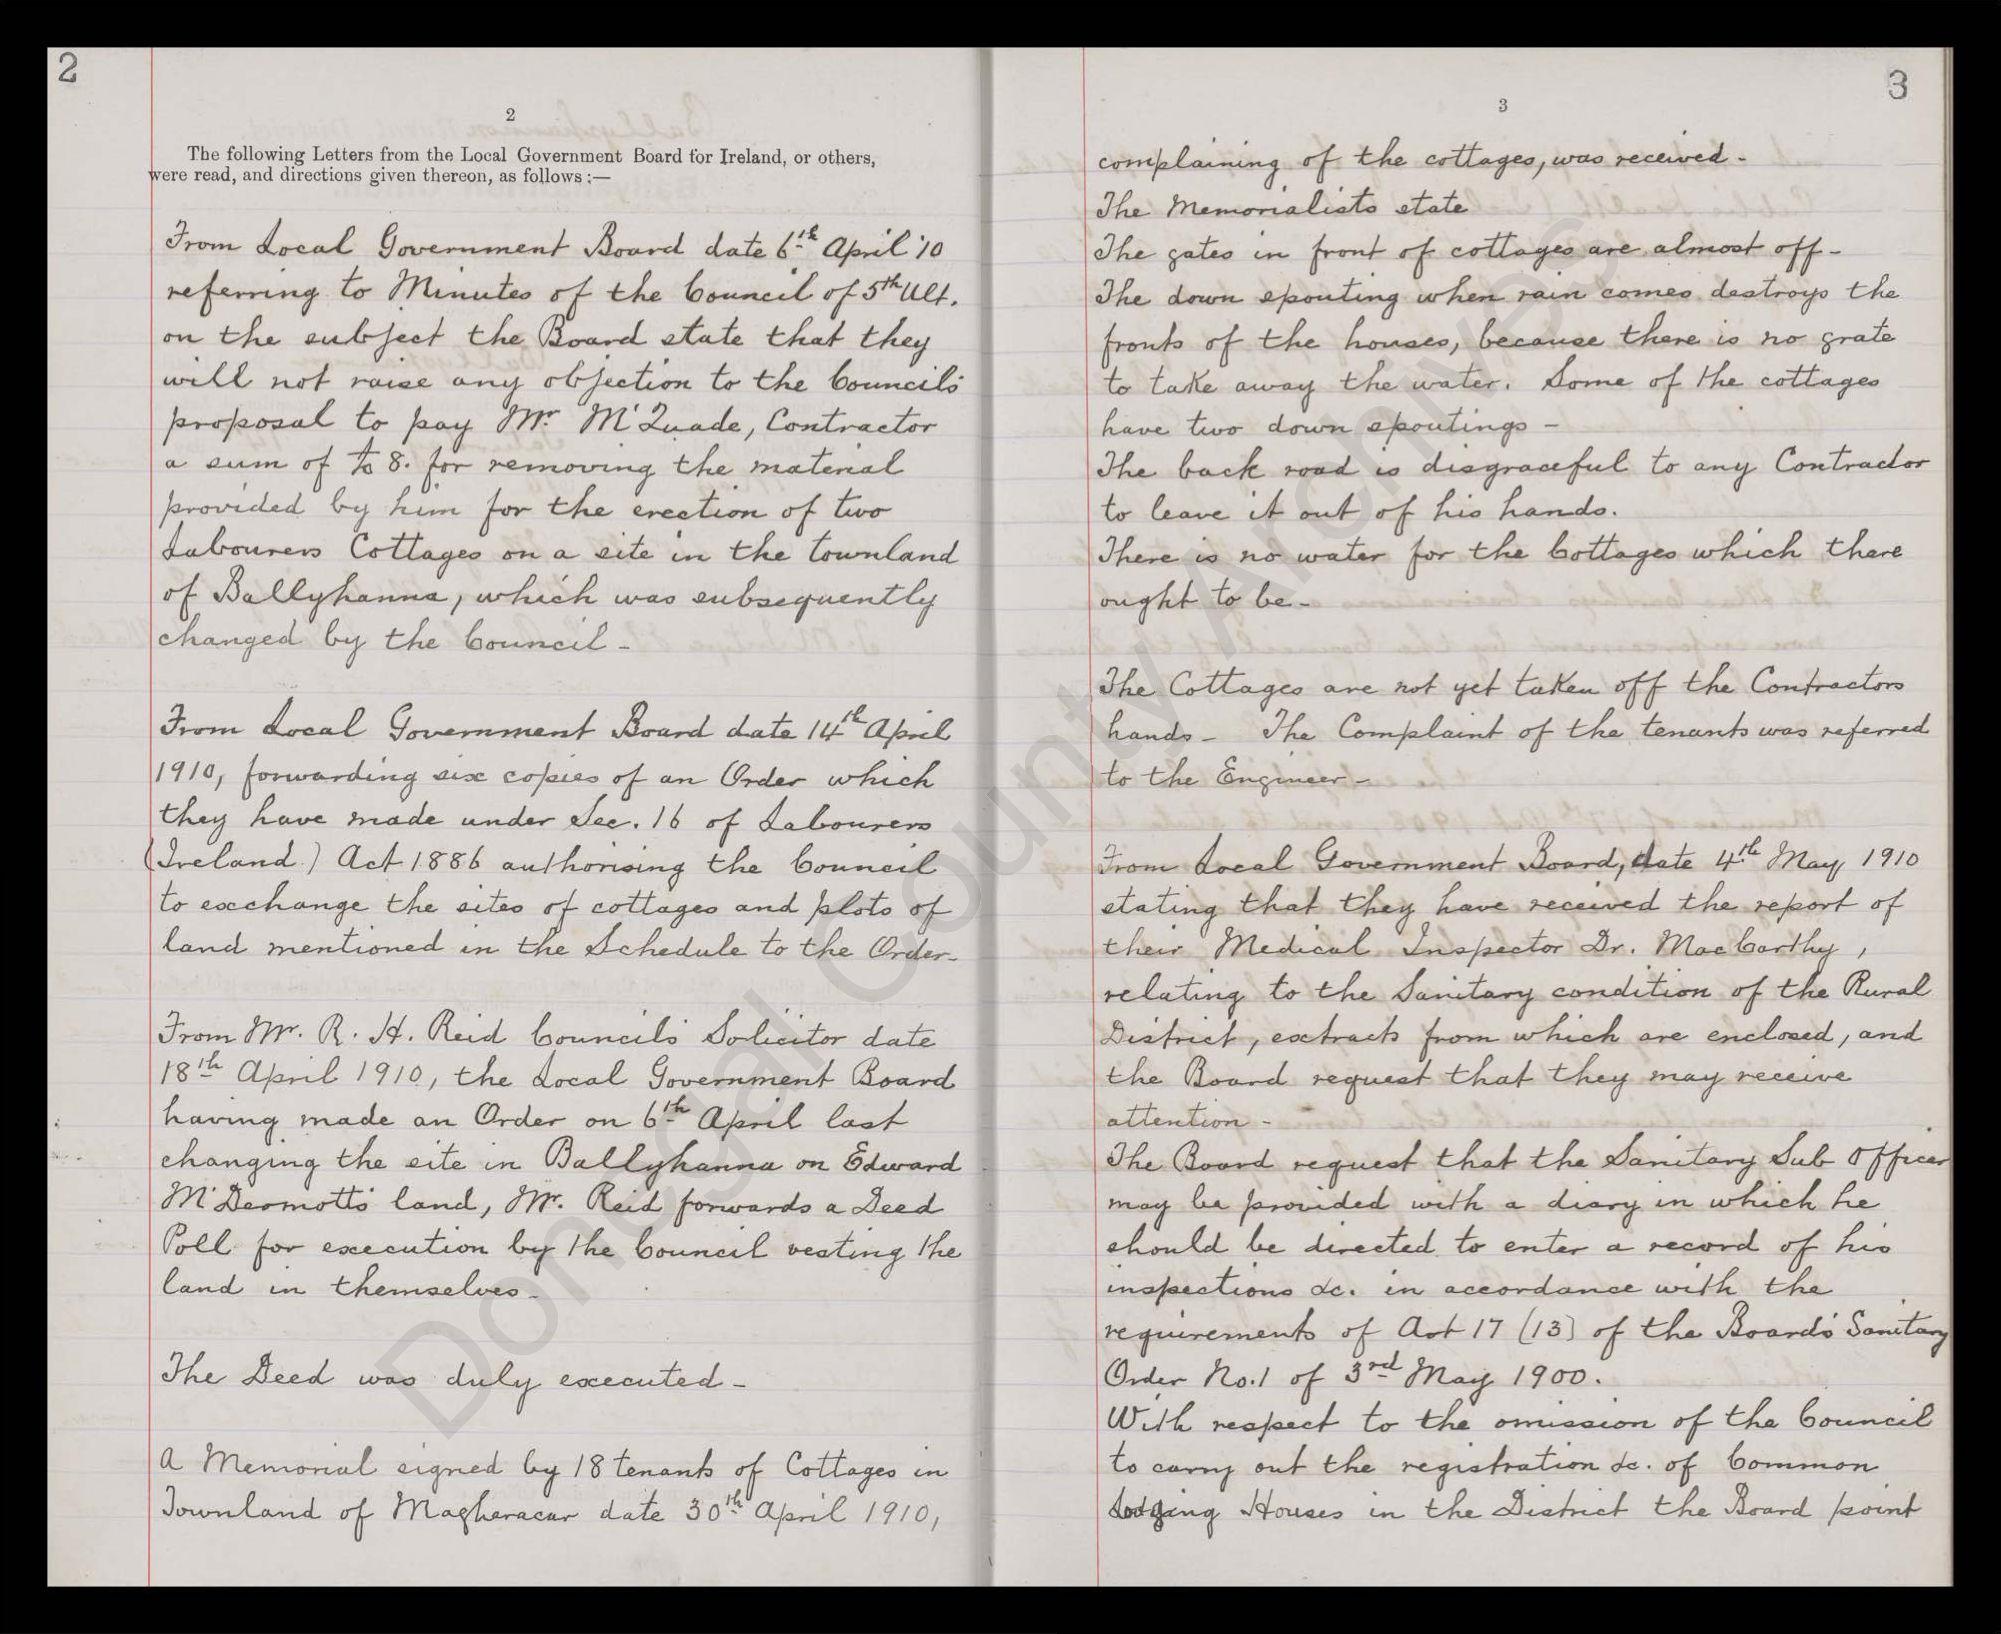 2
2
The following Letters from the Local Government Board for Ireland, or others,
were read, and directions given thereon, as follows:—
From Local Government Board date 6th April '10
referring to Minutes of the Council of 5th Ult.
on the subject the Board state that they
will not raise any objection to the Councils'
proposal to pay Mr. McQuade, Contractor
a sum of £8. for removing the material
provided by him for the erection of two
Labourers Cottages on a site in the townland
of Ballyhanna, which was subsequently
changed by the Council -
From Local Government Board date 14th April
1910, forwarding six copies of an Order which
they have made under Sec. 16 of Labourers
(Ireland) Act 1886 authorising the Council
to exchange the sites of cottages and plots of
land mentioned in the Schedule to the Order-
From Mr. R. H. Reid Councils' Solicitor date
18th April 1910, the Local Government Board
having made an Order on 6th April last
changing the site in Ballyhanna on Edward
McDermott's land, Mr. Reid forwards a Deed
Poll for execution by the Council vesting the
land in themselves-
The Deed was duly executed-
A Memorial signed by 18 tenants of Cottages in
Townland of Magheracar date 30th April 1910,
3
3
complaining of the cottages, was received-
The Memorialists state
The gates in front of cottages are almost off-
The down spouting when rain comes destroys the
fronts of the houses, because there is no grate
to take away the water. Some of the cottages
have two down spoutings-
The back road is disgraceful to any Contractor
to leave it out of his hands.
There is no water for the Cottages which there
ought to be-
The Cottages are not yet taken off the Contractors
hands- The Complaint of the tenants was referred
to the Engineer-
From Local Government Board, date 4th May, 1910
stating that they have received the report of
their Medical Inspector Dr. MacCarthy,
relating to the Sanitary condition of the Rural
District, extracts from which are enclosed, and
the Board request that they may receive
attention-
The Board request that the Sanitary Sub Officer
may be provided with a diary in which he
should be directed to enter a record of his
inspections &c. in accordance with the
requirements of Art 17 (13) of the Board's Sanitary
Order No.1 of 3rd May 1900.
With respect to the omission of the Council
to carry out the registration &c. of Common
Lodging Houses in the District the Board point
Donegal County Archives